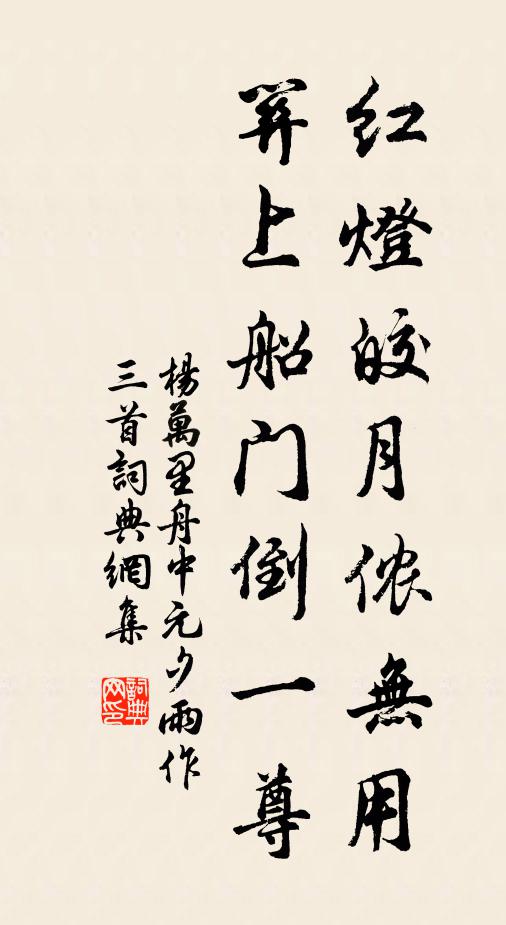 紅燈皎月侬無用
上船门倒一尊
楊萬里舟中元夕雨作
三首詞典網集
詞典
网印